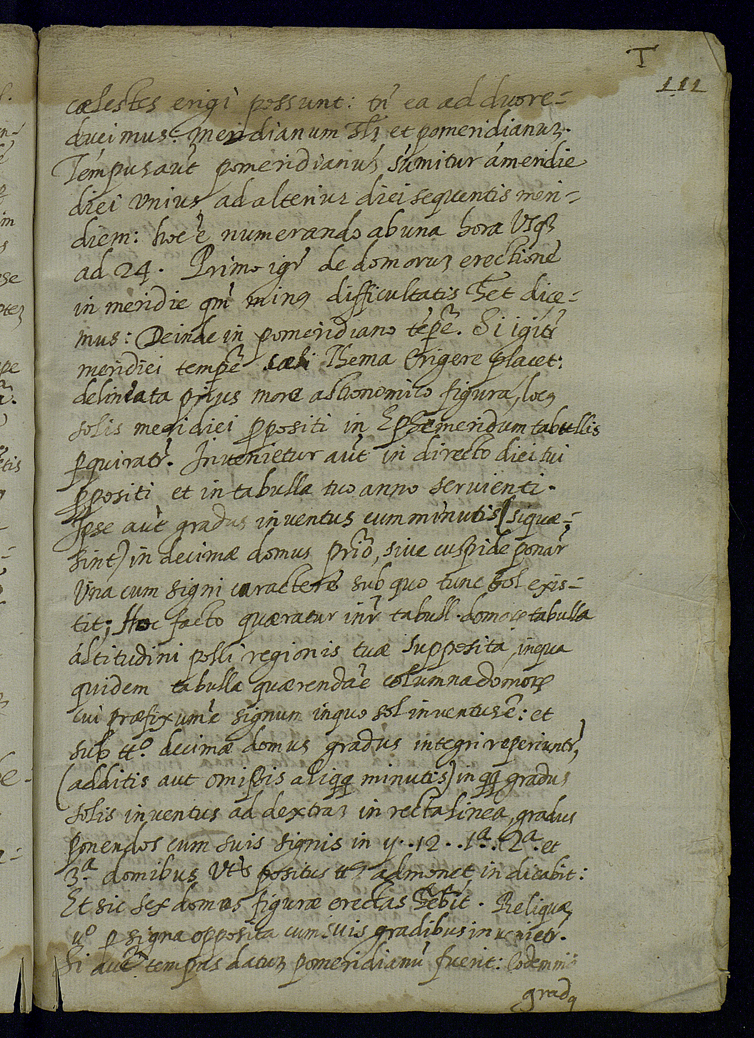 T
111
cælestes erigi possunt: tñ ea ad duo re-
ducimus: meridianum et pomeridianuz.
Tempus aut̃ pomeridianuz sumitur á meridie
diei unius ad alterius diei sequentis meri-
diem: hoc ẽ numerando ab una hora usqz
ad 24. Primo igr̃ de domoruz erectione
in meridie qm̃ minq difficultatis hẽt dice-
mus: Deinde in pomeridiano tẽpẽ. Si igitr̃
meridiei tempẽ cæli Thema Erigere placet:
deliniata prius more astronomico figura, locq
solis meridiei ppositi in Ephemeridum tabullis
pquiratr̃. Invenietur aut̃ in directo diei tui
ppositi et in tabulla tuo anno servienti.
Ipse aut̃ gradus inventus cum minutis (si quæ-
sint) in decimæ domus prĩo, sive cuspide ponar̃
Una cum signi caractere sub quo tunc Sol exis-
tit; Hoc facto quæratur inr̃ tabull. domoꝝ tabulla
altitudini polli regionis tuæ supposita, in qua
quidem tabulla quærenda ẽ columna domoꝝ
cui præfixum ẽ signum in quo sol inventus ẽ: et
sub tt.º decimæ domus gradus integri reperiuntr̃,
(additis aut omissis aliqq minutis) in qq gradus
solis inventus ad dextraz in recta linea, gradus
ponendos cum suis signis in 11. 12. 1ª. 2ª. et
3ª domibus, ut positus ttº admonet indicabit:
Et sic sex domos figuræ erectas habebit. Reliquæ
vº p signa opposita cum suis gradibus invenietr̃.
Si aut̃ tempus datuz pomeridianũ fuerit:
gradq